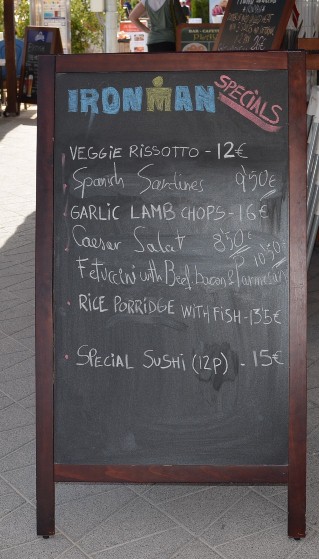 IRONMAN SPECIALS
VEGGIE RISSOTTO - 12€
Spanish Sardines 9'50€
GARLIC LAMB CHOPS - 16€
Caesar Salat 8'50€
10'50€
Fetuccini with Beef, bacon & Parmesan
RICE PORRIDGE WITH FISH - 13'5€
SPECIAL SUSHI (12P) - 15€